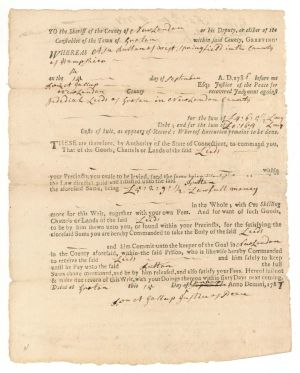 TO the Sheriff of the County of New London or his Deputy, or either of the
Constables of the Town of Groton within said County, GREETING
WHEREAS Asa of west Springfield in the County
of Hampshire
on the 1st day of September A.D. 1786 before me
Gallup Esq; Justice of the Peace for
recovered Judgment against
Jedidiah Leeds of Groton in New London County
for the Sum of
Debt; and for the Sum of
Costs of Suit, as appears of Record; Whereof Execution remains to be done.
THESE are therefore, by Authority of the State of Connecticut, to command you,
That of the Goods, Chattels or Lands of the said Leeds
within
your Precincts, you cause to be levied, and the same being disposed of as
the Law directs, paid and satisfied unto the said
the aforesaid Sums, being Lawfull money
in the Whole; with One Shilling
more for this Writ, together with your own Fees. And for want of such Goods,
Chattels or Lands of the said Leeds
to be by him shewn unto you, or found within your Precincts, for the satisfying the
aforesaid Sums you are hereby commanded to take the Body of the said Leeds
and him Commit unto the keeper of the Goal in New London
in the County aforesaid, within the said Prison, who is likewise hereby Commanded
to receive the said Leeds and him safely to keep
until he Pay unto the said the full
Sums above-mentioned, and be by him released, and also satisfy your Fees. Hereof fail not
& make due return of this Writ, with your Doings thereon within Sixty Days next coming.
Dated at Groton this 1st Day of Anno Domini, 178
Gallup Justice of Peace